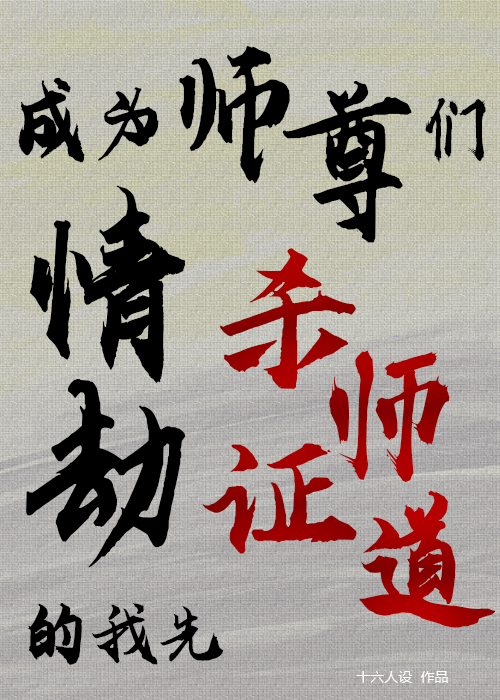 成为师尊们
情劫
的我先
杀师证道
十六人设 作品